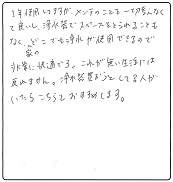 1年使用してますが、メンテのことを一切考えなく
て良いし、浄水器でスペースをとられることも
なく、どこでも浄水が使用できるので
家の
非常に快適です。これが無い生活には
戻れません。浄水器買おうとしてる人が
いたらこちらをおすすめします。